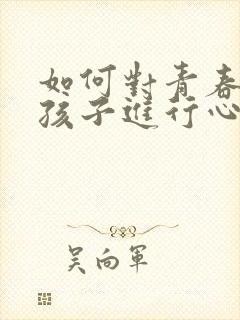 如何對青春
孩子進行心
吳向軍